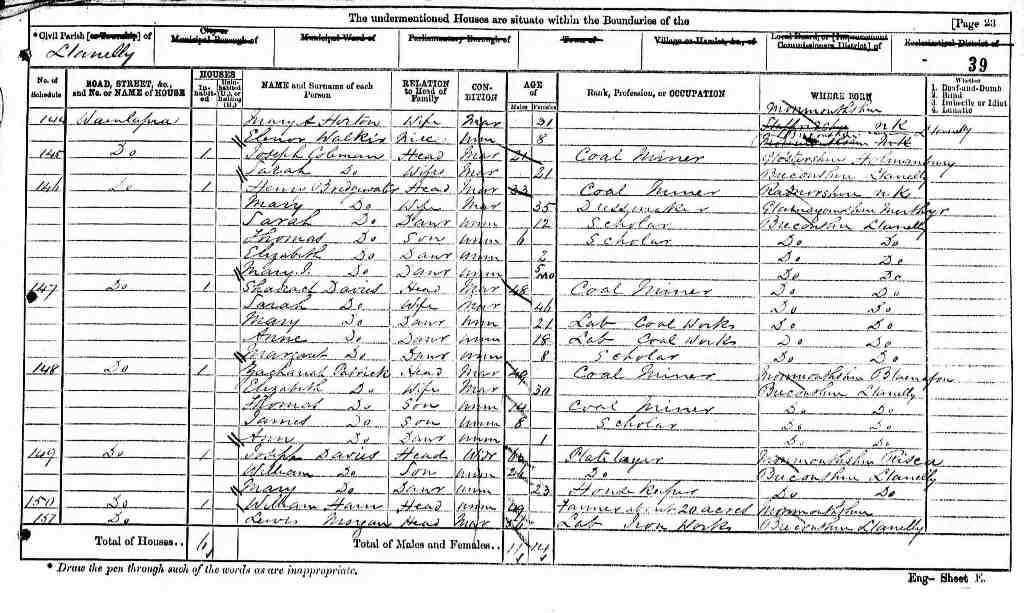 The undermentioned Houses are situate within the Boundaries of the [Page 23
*Civil Parish [or Township] of City or Municipal Borough of Municipal Ward of Parliamentary Borough of Town of Village or Hamlet, &c., of Local Board, or [Improvement Commissioners District] of Ecclesiastical District of
Llanelly
39
No. of Schedule ROAD, STREET, &c., and No. or NAME of HOUSE HOUSES Inhabited Uninhabited (U.), or Building (B.) NAME and Surname of each Person RELATION to Head of Family CONDITION AGE of Males Females Rank, Profession, or OCCUPATION WHERE BORN Whether 1. Deaf-and-Dumb 2. Blind 3. Imbecile or Idiot 4. Lunatic
144 Mary A Horton Wife Mar 31 Monmouthshire NK Llanelly
Elenor Walkin Niece Unm 8
145 Do 1 Joseph Coleman Head Mar 21 Coal Miner
Sarah Do Wife Mar 21 Breconshire Llanelly
146 Do 1 Henry Bridgewater Head Mar 33 Coal Miner Radnorshire NK
Mary Do Wife Mar 35 Dressmaker Glamorganshire Merthyr
Sarah Do Dawr Unm 12 Scholar Breconshire Llanelly
Thomas Do Son Unm 6 Scholar Do Do
Elizabeth Do Dawr Unm 2 Do Do
Mary J. Do Dawr Unm 5mo Do Do
147 Do 1 Shadrach Davies Head Mar 48 Coal Miner Do Do
Sarah Do Wife Mar 46 Do Do
Mary Do Dawr Unm 21 Lab Coal Works Do Do
Anne Do Dawr Unm 18 Lab Coal Works Do Do
Margaret Do Dawr Unm 8 Scholar Do Do
148 Do 1 Zachariah Patrick Head Mar 49 Coal Miner Monmouthshire Blaenafon
Elizabeth Do Wife Mar 30 Breconshire Llanelly
Thomas Do Son Unm 14 Coal Miner Do Do
James Do Son Unm 8 Scholar Do Do
Ann Do Dawr Unm 1 Do Do
149 Do 1 Joseph Davies Head Widr Platelayer Monmouthshire Risca
William Do Son Unm 26 Do Breconshire Llanelly
Mary Do Dawr Unm 23 Housekeeper Do Do
150 Do 1 William Ham Head Unm 49 Farmer about 20 acres Monmouthshire
151 Do Lewis Morgan Head Mar Lab Iron Works Breconshire Llanelly
Total of Houses.. 6 Total of Males and Females.. 11 14
* Draw the pen through such of the words as are inappropriate.
Eng– Sheet E.